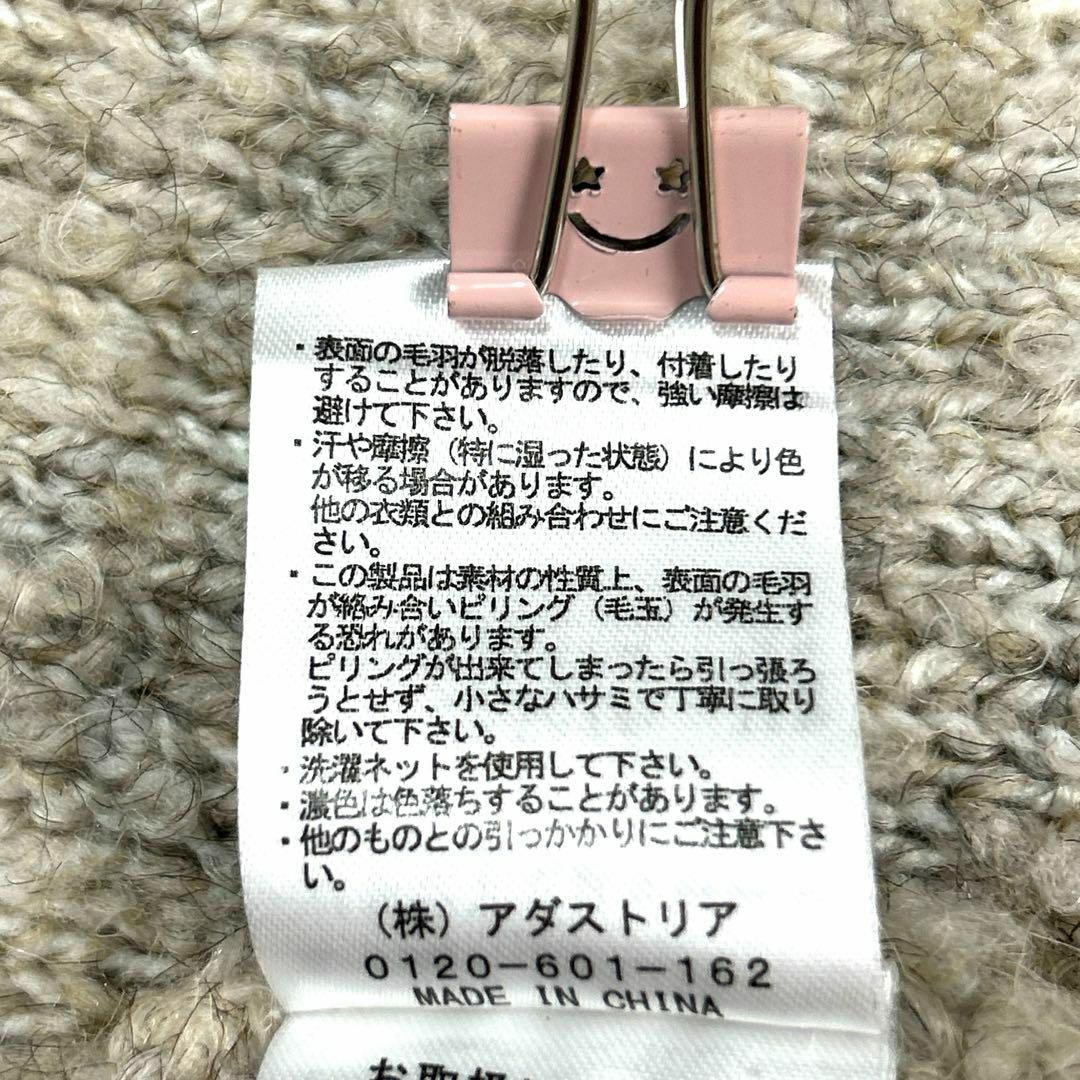 ・表面の毛羽が脱落したり、付着したり
することがありますので、強い摩擦は
避けて下さい。
・汗や摩擦（特に湿った状態）により色
が移る場合があります。
他の衣類との組み合わせにご注意くだ
さい。
・この製品は素材の性質上、表面の毛羽
が絡み合いピリング（毛玉）が発生す
る恐れがあります。
ピリングが出来てしまったら引っ張ろ
うとせず、小さなハサミで丁寧に取り
除いて下さい。
・洗濯ネットを使用して下さい。
・濃色は色落ちすることがあります。
・他のものとの引っかかりにご注意下さ
い。
（株）アダストリア
0120-601-162
MADE IN CHINA
お取扱